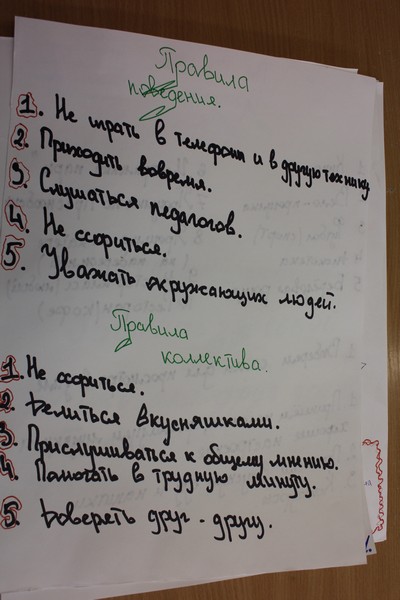 Правила
поведения.
1. Не играть в телефоны и в другую технику
2. Приходить вовремя.
3. Слушаться педагогов.
4. Не ссориться.
5. Уважать окружающих людей.
Правила
коллектива.
1. Не ссориться.
2. Делиться вкусняшками.
3. Прислушиваться к общему мнению.
4. Помогать в трудную минуту.
5. Довереть друг - другу.